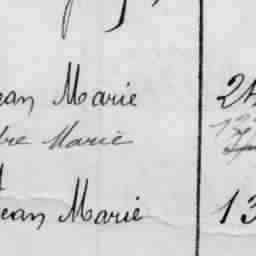 ean Marie 24
dre Marie
ean Marie 13